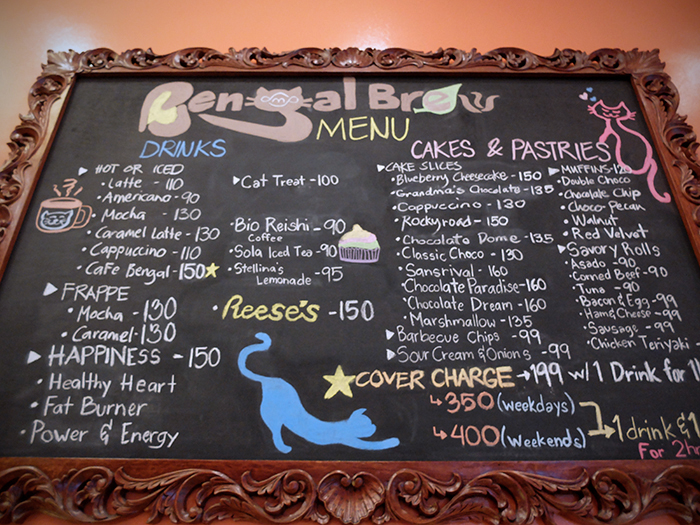 Bengal Brew
MENU
DRINKS
▸HOT OR ICED
•Latte - 110
•Americano-90
•Mocha - 130
•Caramel Latte-130
•Cappuccino-110
•Cafe Bengal-150
▸FRAPPE
•Mocha-130
•Caramel-130
▸HAPPINESS-150
•Healthy Heart
•Fat Burner
•Power & Energy
▸Cat Treat-100
•Bio Reishi-90
Coffee
•Sola Iced Tea-90
•Stellina's -95
Lemonade
•Reese's-150
CAKES & PASTRIES
▸CAKE SLICES
•Blueberry Cheesecake-150
•Grandma's Chocolate-135
•Cappuccino-130
•Rockyroad-150
•Chocolate Dome-135
•Classic Choco-130
•Sansrival-160
•Chocolate Paradise-160
•Chocolate Dream-160
•Marshmallow-135
▸Barbecue Chips-99
▸Sour Cream & Onions-99
▸MUFFINS-120
•Double Choco
•Chocolate Chip
•Choco-Pecan
•Walnut
•Red Velvet
▸Savory Rolls
•Asado-90
•Corned Beef-90
•Tuna-90
•Bacon & Egg-99
•Ham & Cheese-99
•Sausage-99
•Chicken Teriyaki-
COVER CHARGE→199 w/1 Drink for 1
↳350(weekdays)
↳400(weekends)
→1 drink & 1
For 2h